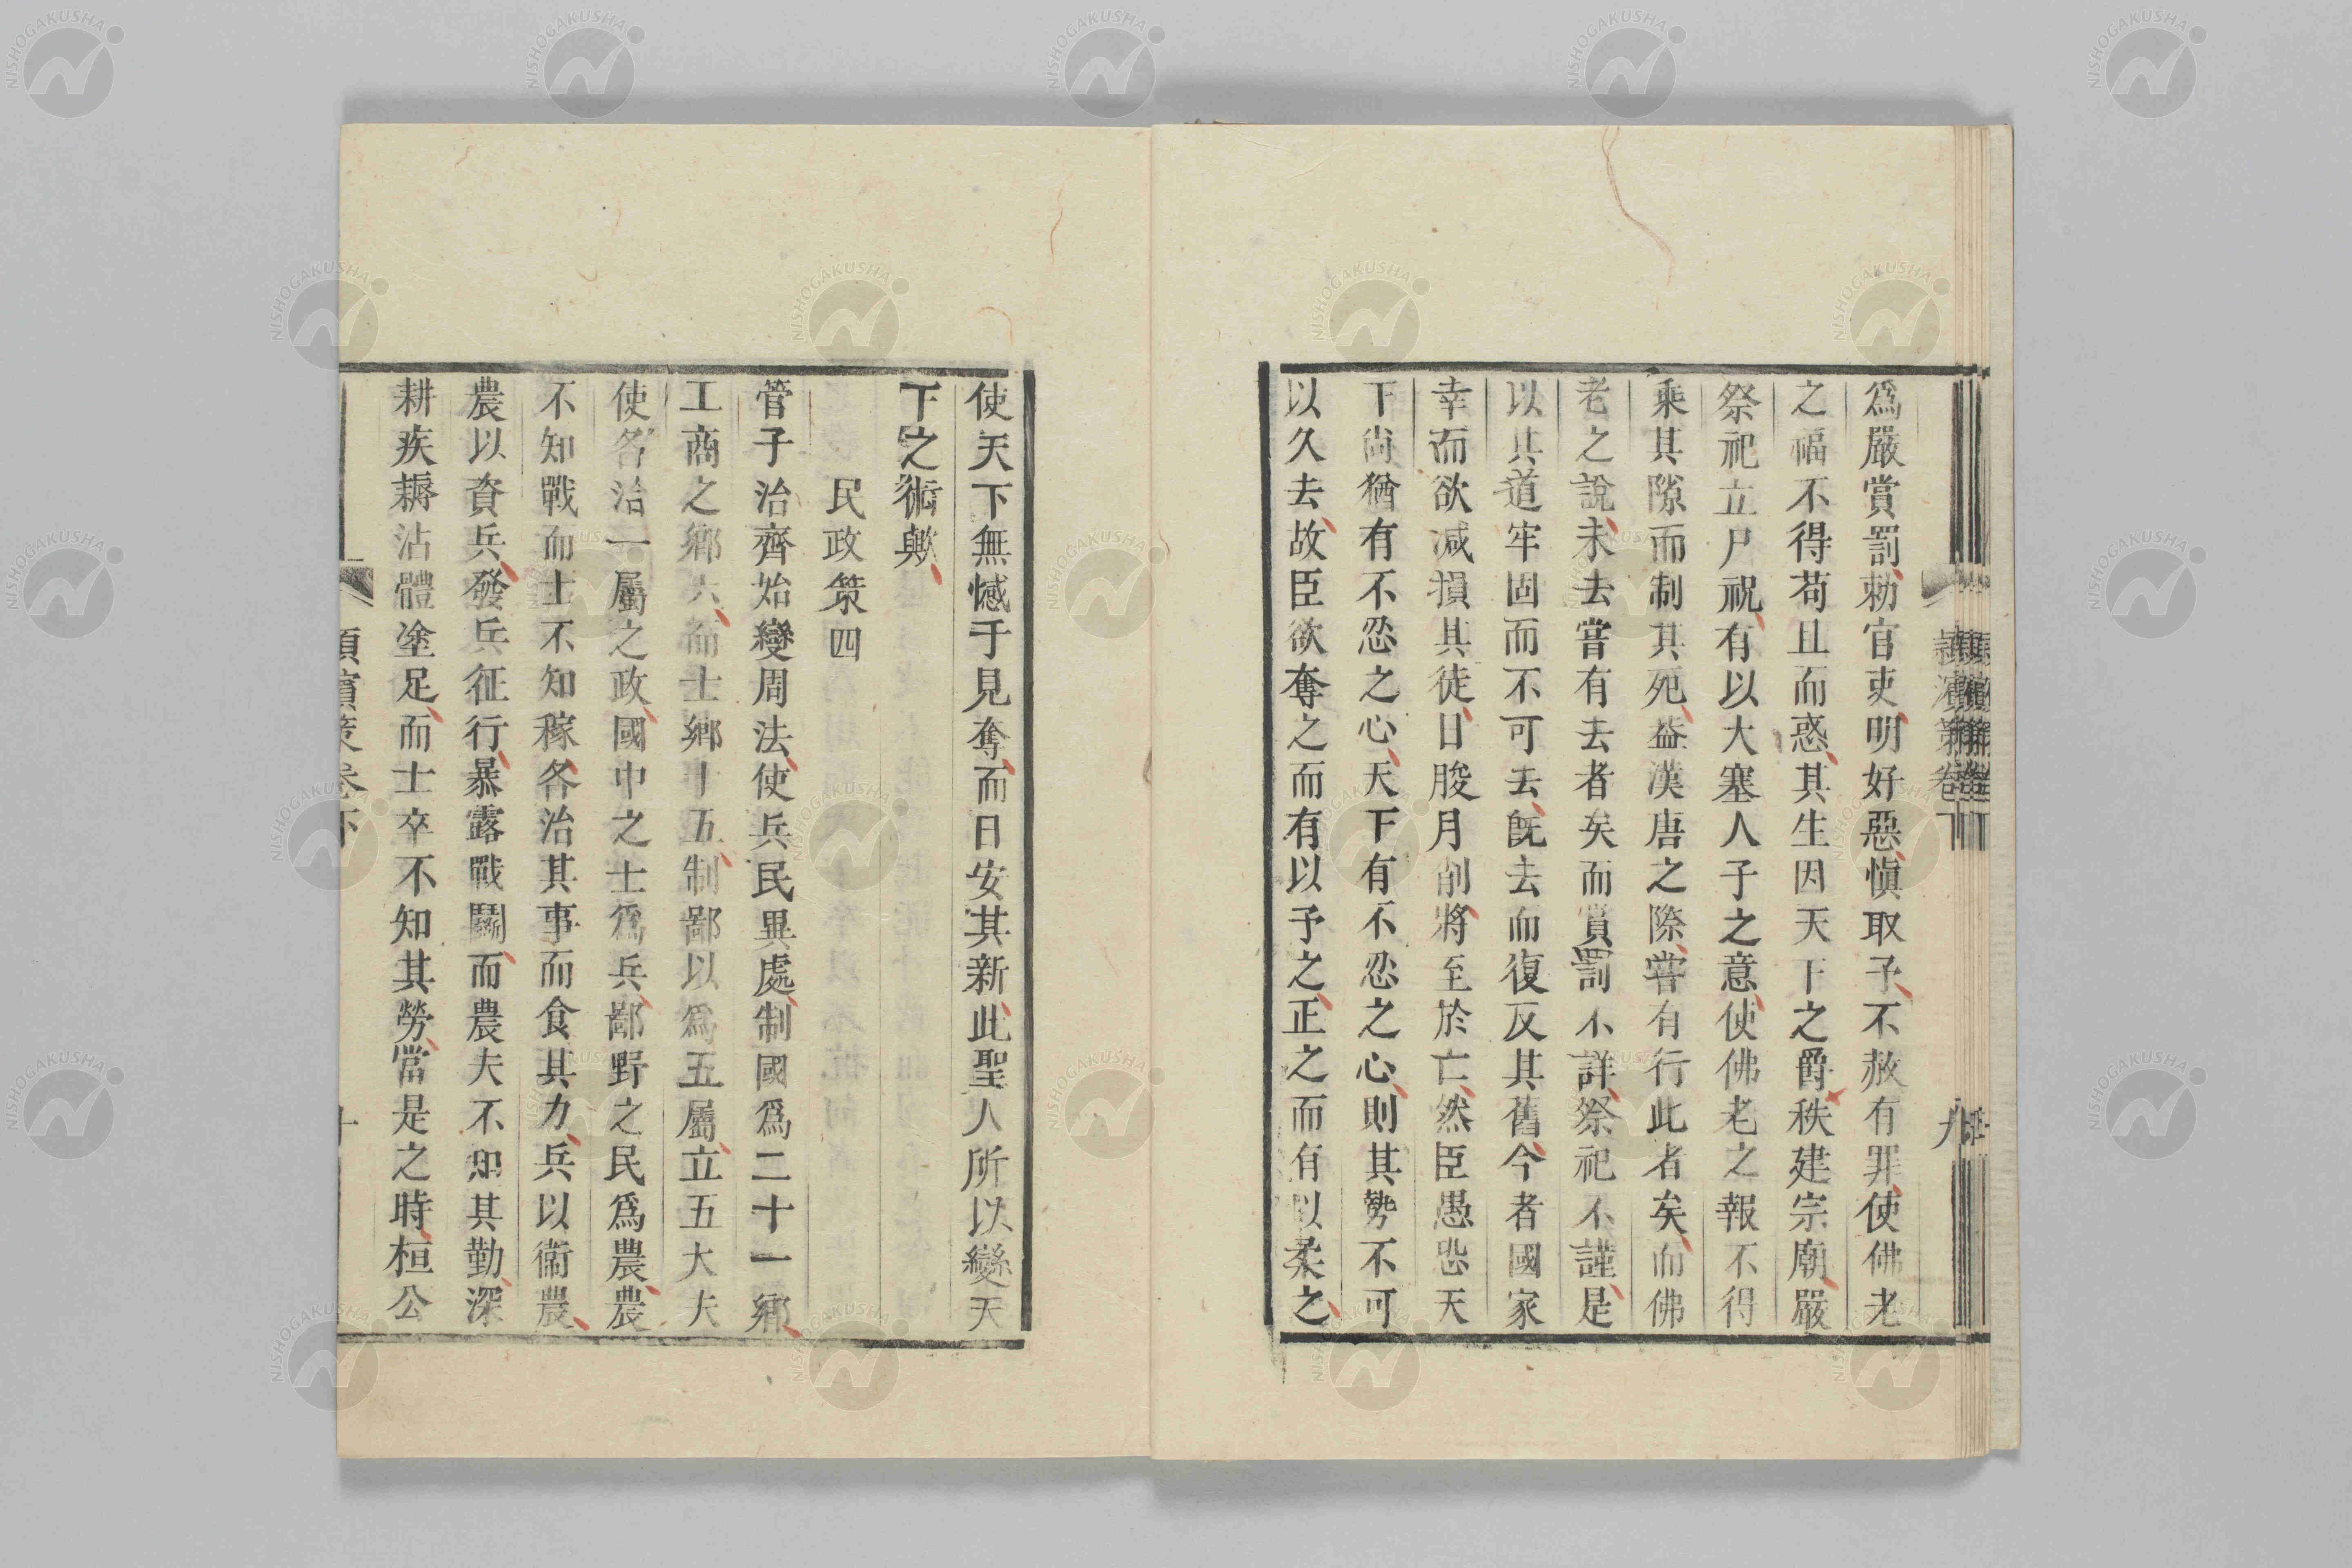 爲嚴賞罰勑官吏明好惡愼取予不赦有罪使佛老
之福不得苟且而惑其生因天下之爵秩建宗廟嚴
祭祀立尸祝有以大塞人子之意使佛老之報不得
乘其隙而制其死益漢唐之際嘗有行此者矣而佛
老之說未去嘗有去者矣而賞罰不詳祭祀不謹是
以其道牢固而不可去旣去而復反其舊今者國家
幸而欲減損其徒日朘月削將至於亡然臣愚恐天
下尚猶有不忍之心天下有不忍之心則其勢不可
以久去故臣欲奪之而有以予之正之而有以柔之
使天下無憾于見奪而日安其新此聖人所以變天
下之術歟
民政策四
管子治齊始變周法使兵民異處制國爲二十一鄉
工商之鄉六而士鄉十五制鄙以爲五屬立五大夫
使各治一屬之政國中之士爲兵鄙野之民爲農農
不知戰而士不知稼各治其事而食其力兵以衞農
農以資兵發兵征行暴露戰鬭而農夫不知其勤深
耕疾耨沾體塗足而士卒不知其勞當是之時桓公
潁濱策卷下
九
NISHOGAKUSHA